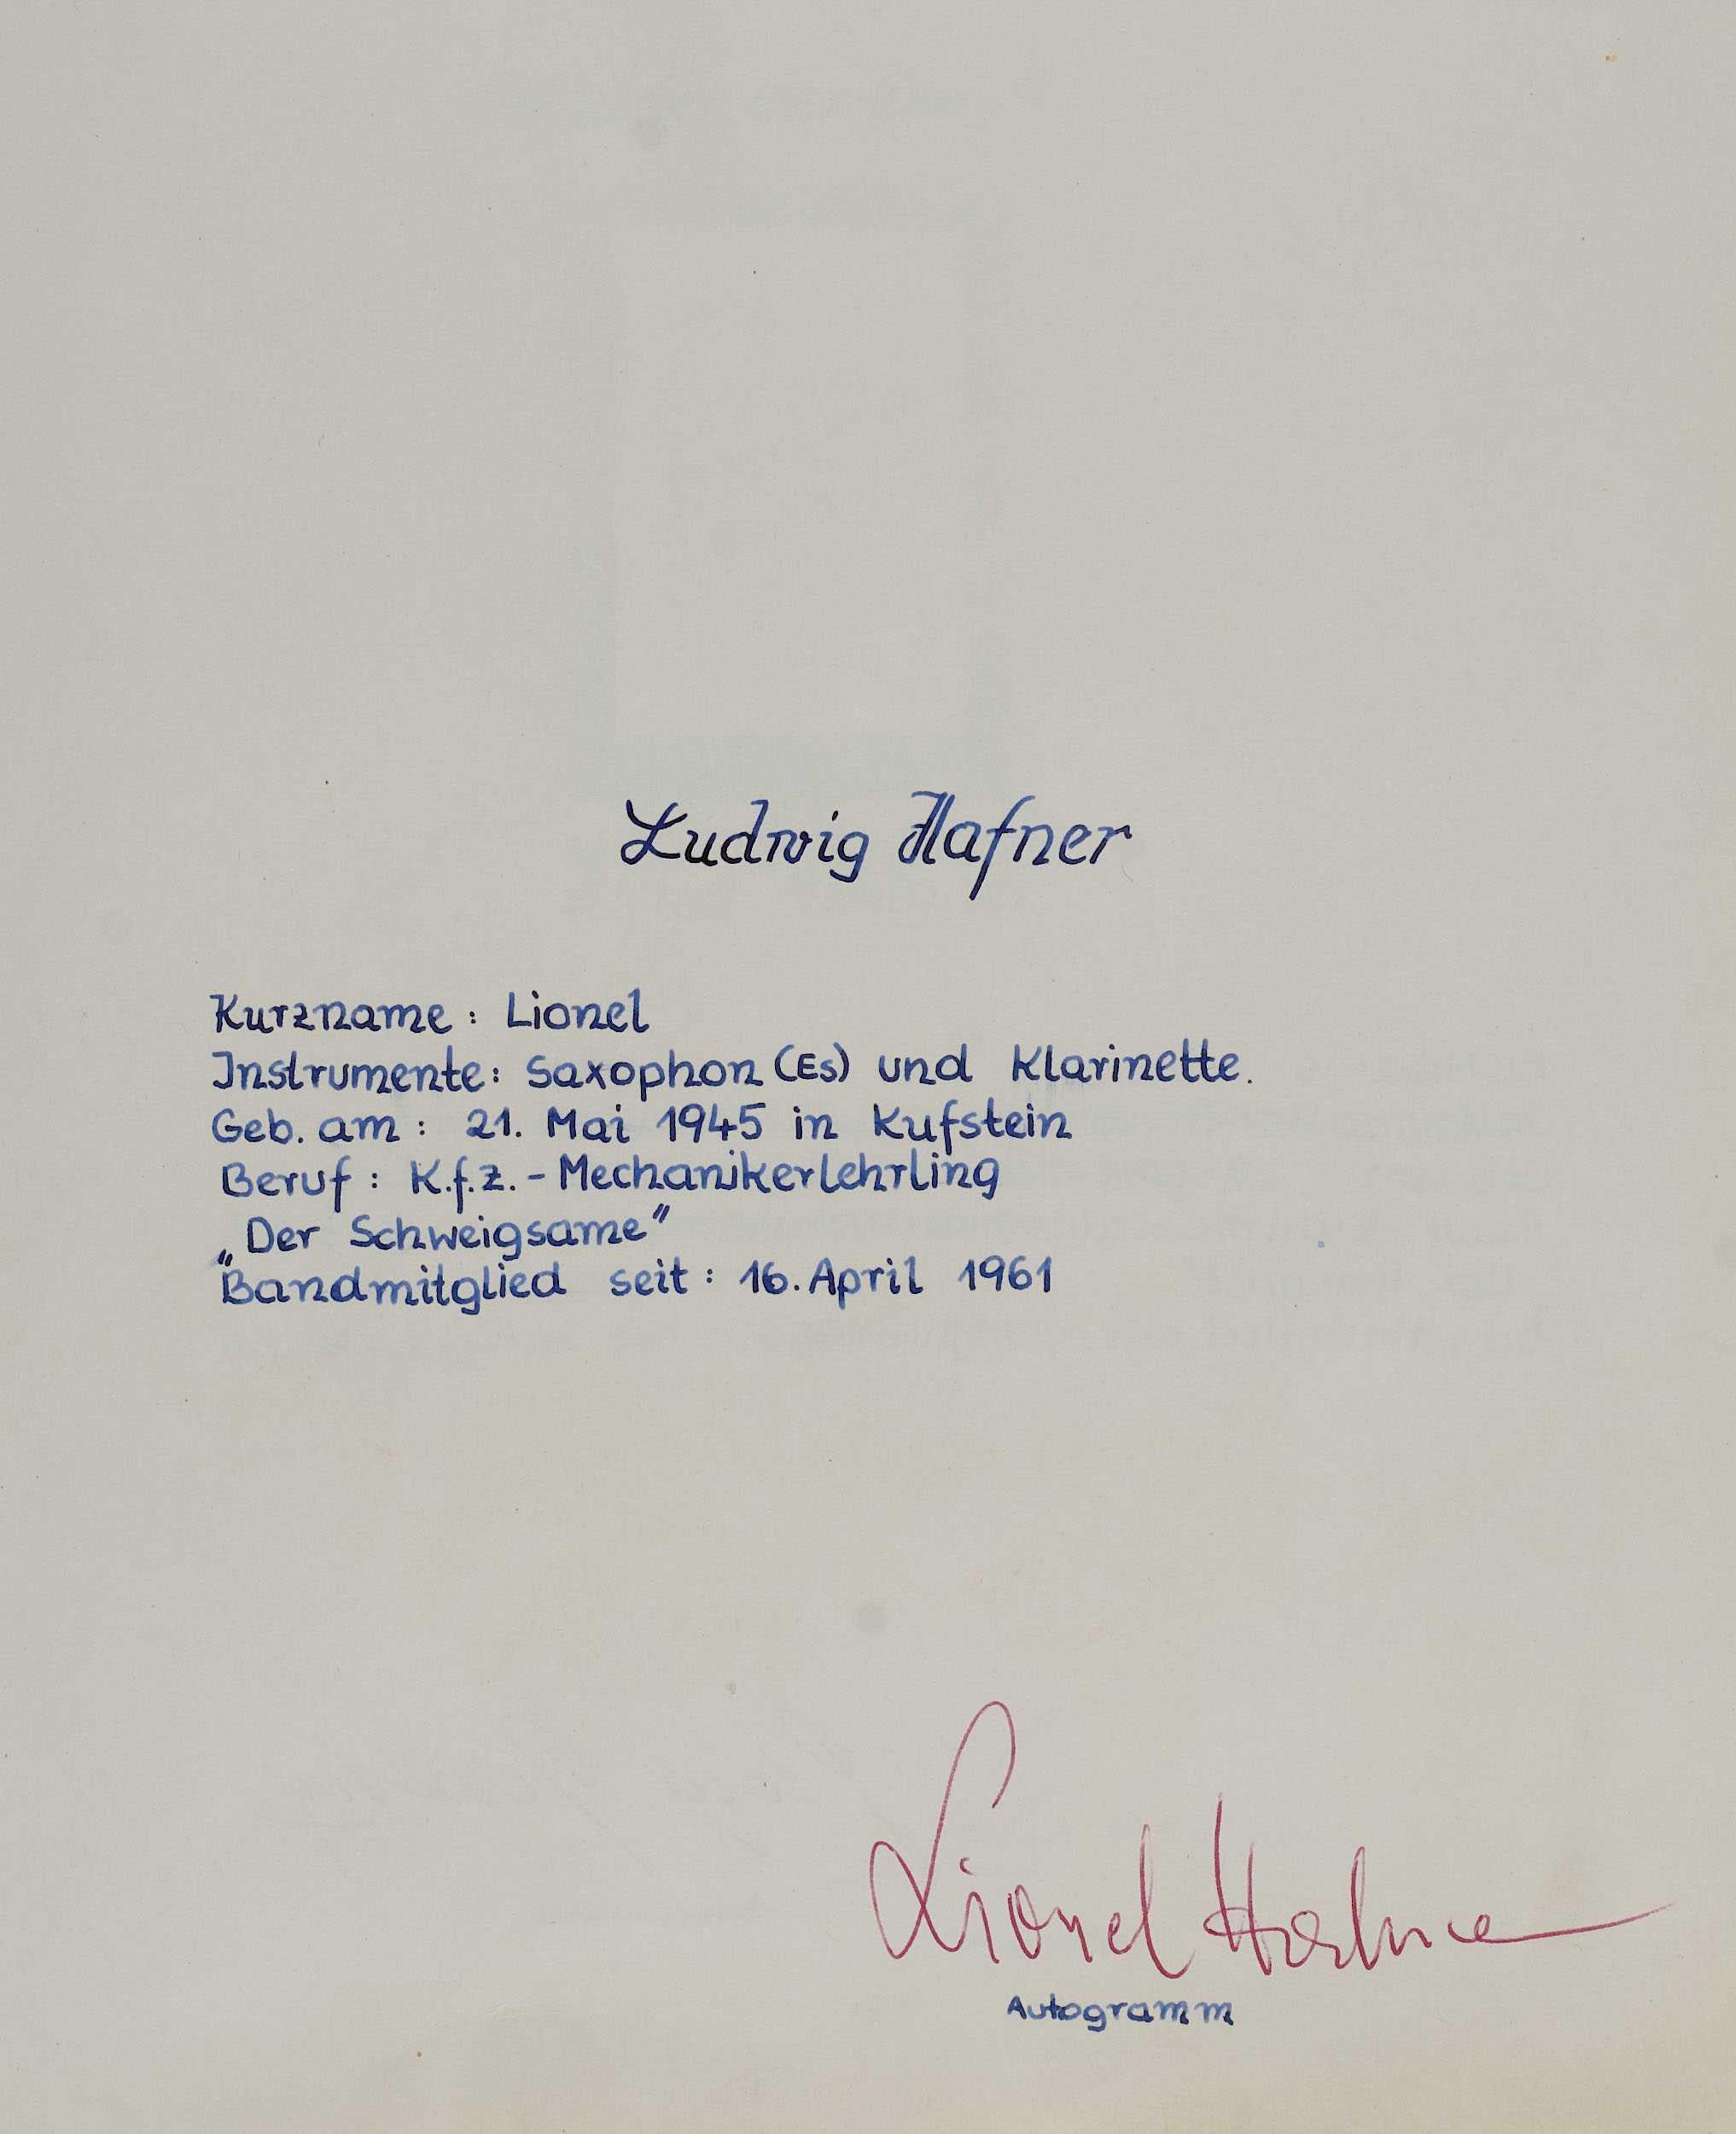 Ludwig Hafner
Kurzname: Lionel
Instrumente: Saxophon (Es) und Klarinette.
Geb. am: 21. Mai 1945 in Kufstein
Beruf: K.f.z.-Mechanikerlehrling
„Der Schweigsame"
Bandmitglied seit: 16. April 1961
Lionel Hafner
Autogramm